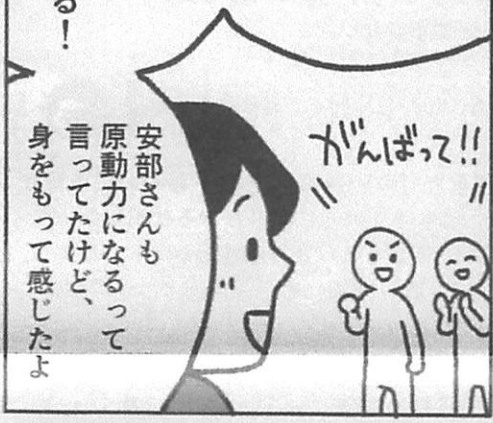 る！
がんばって!!
安部さんも
原動力になるって
言ってたけど、
身をもって感じたよ